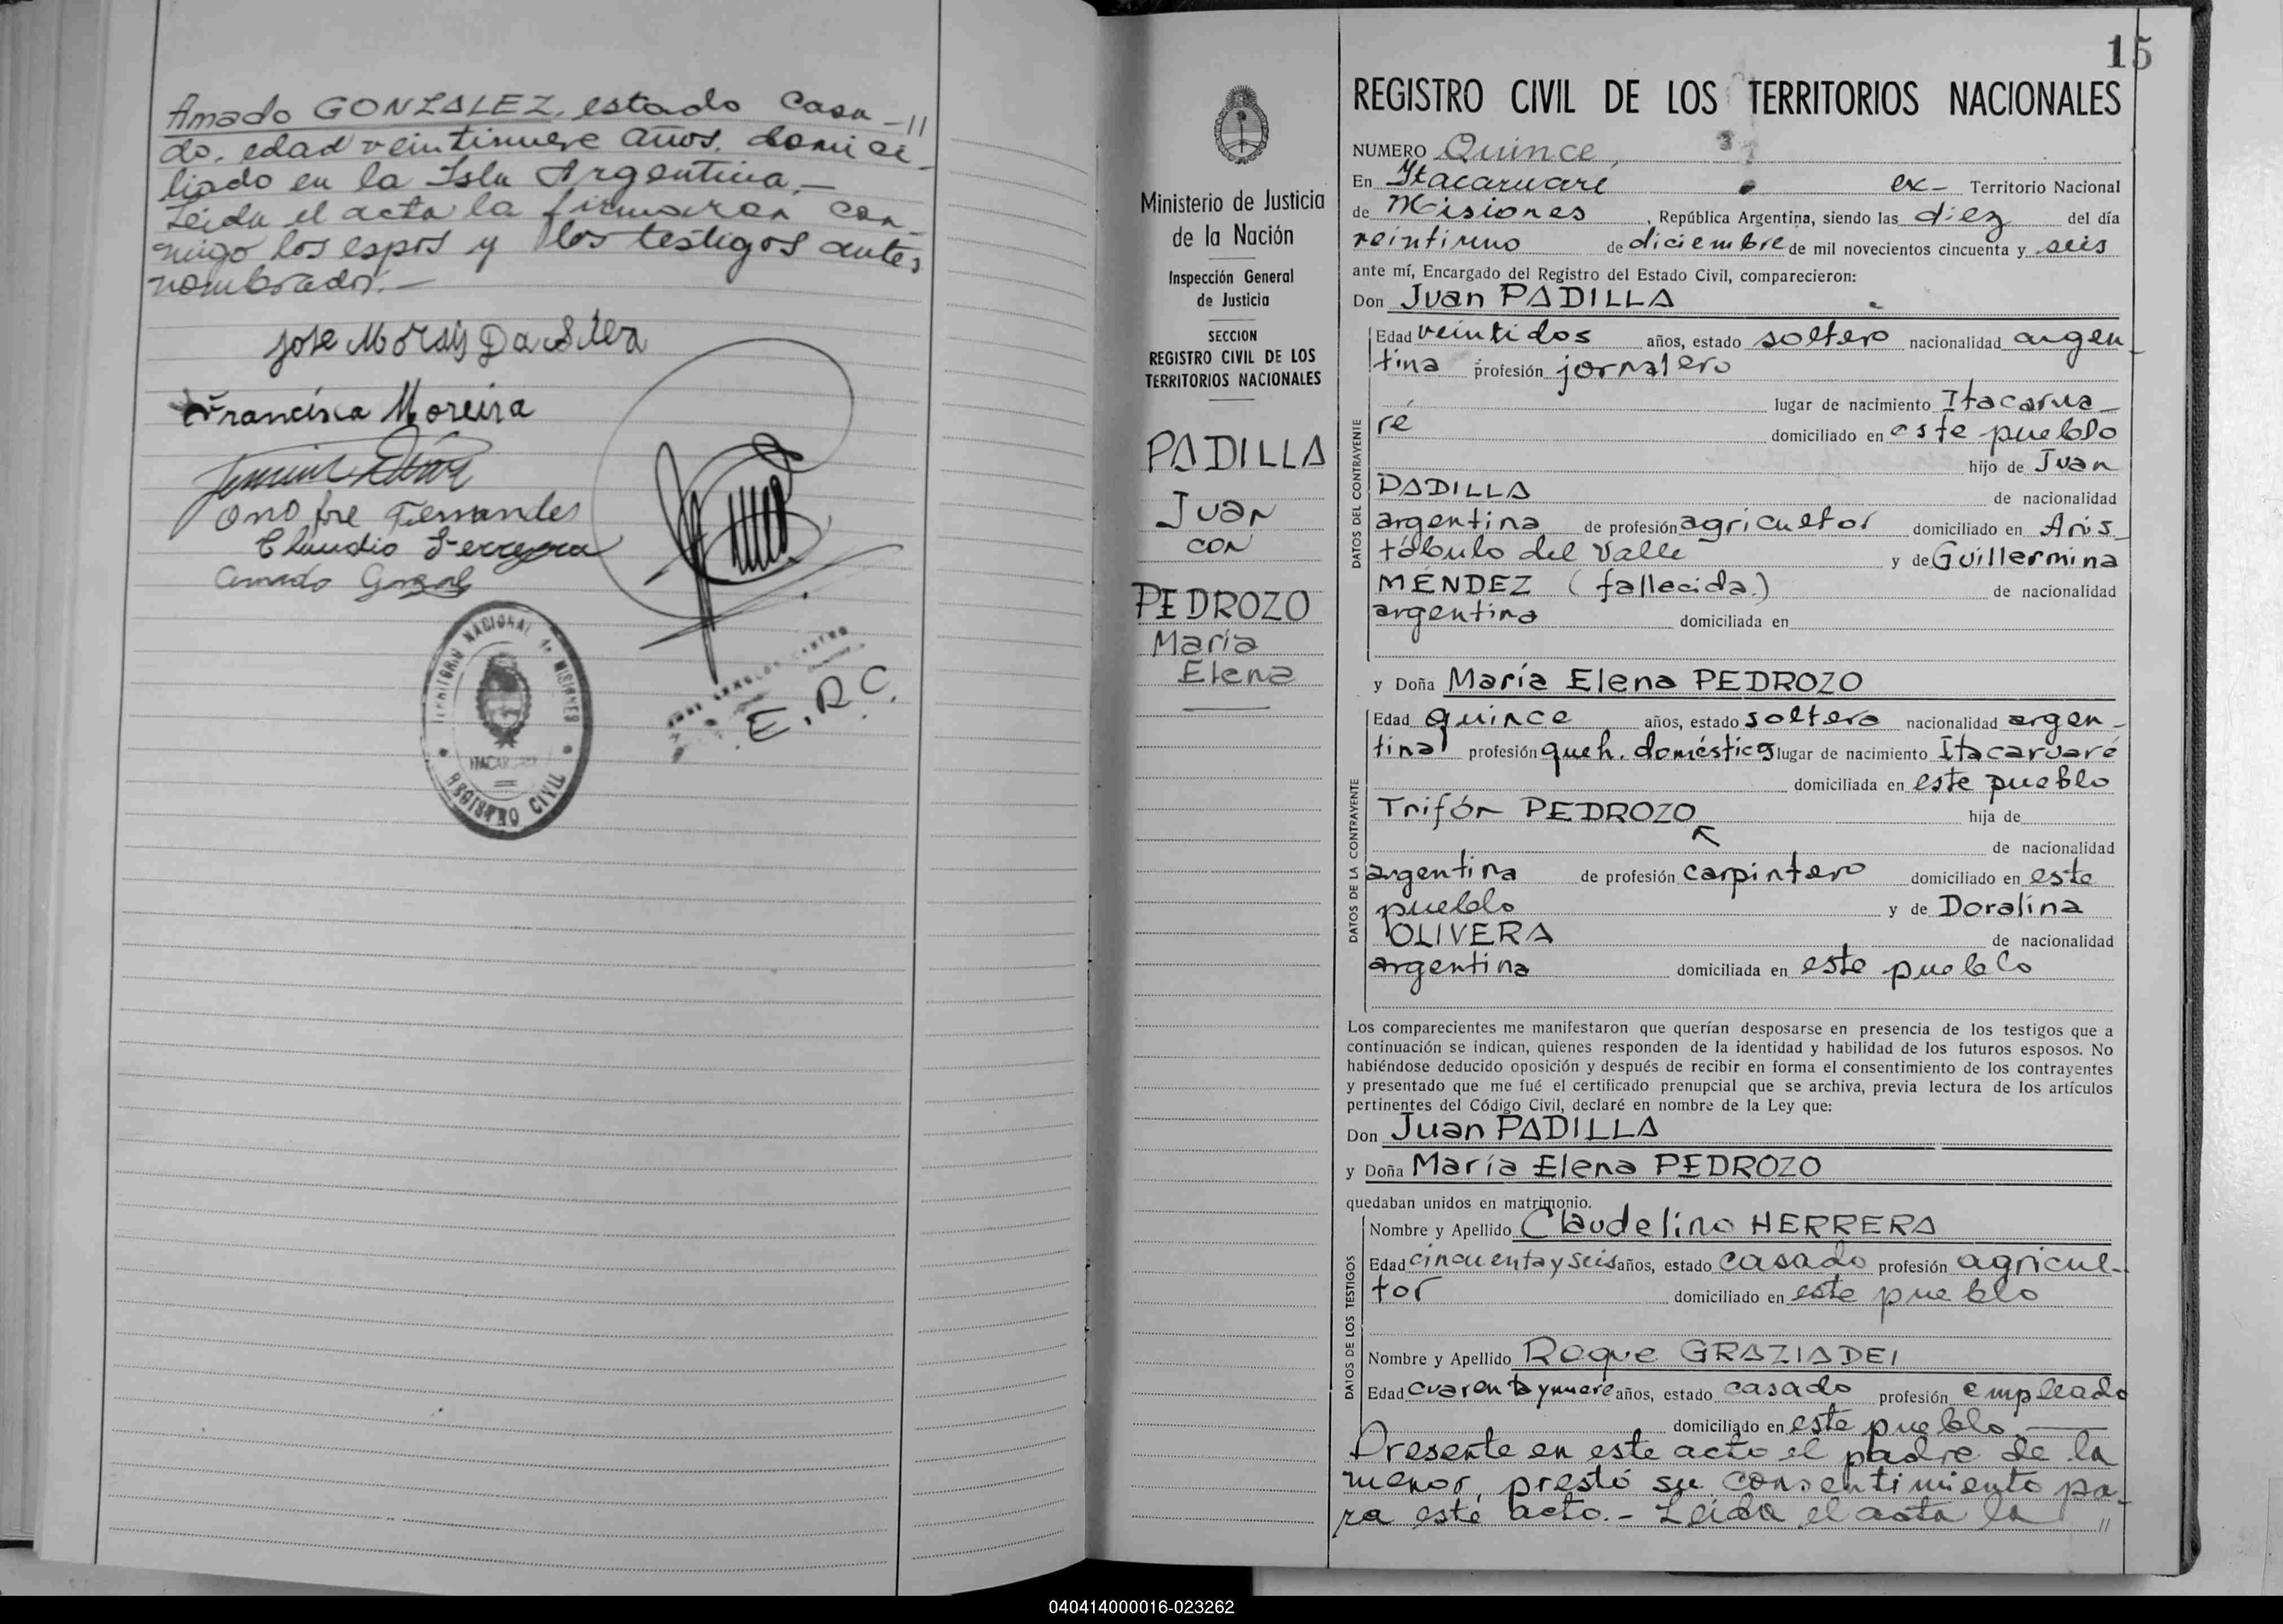 Amado GONZALEZ, estado casa-//
do, edad veintinueve años, domici-
liado en la Isla Argentina.—
Leida el acta la firmaron con-
migo los espos y los testigos antes
nombrados.—
Jose Morais Da Silva
Francisca Moreira
Onofre Fernandes
Claudio Ferreyra
Amado Gonzalez
TERRITORIO NACIONAL de MISIONES
REGISTRO CIVIL
E.R.C.
Ministerio de Justicia
de la Nación
Inspección General
de Justicia
SECCION
REGISTRO CIVIL DE LOS
TERRITORIOS NACIONALES
PADILLA
Juan
CON
PEDROZO
María
Elena
15
REGISTRO CIVIL DE LOS TERRITORIOS NACIONALES
NUMERO Quince
En Itacaruaré ex- Territorio Nacional
de Misiones, República Argentina, siendo las diez del día
veintiuno de diciembre de mil novecientos cincuenta y seis
ante mí, Encargado del Registro del Estado Civil, comparecieron:
Don Juan PADILLA
DATOS DEL CONTRAYENTE
Edad veintidos años, estado soltero nacionalidad argen-
tina profesión jornalero
lugar de nacimiento Itacarua-
ré domiciliado en este pueblo
hijo de Juan
PADILLA de nacionalidad
argentina de profesión agricultor domiciliado en Aris-
tóbulo del Valle y de Guillermina
MÉNDEZ (fallecida.) de nacionalidad
argentina domiciliada en
y Doña María Elena PEDROZO
DATOS DE LA CONTRAYENTE
Edad quince años, estado soltera nacionalidad argen-
tina profesión queh. domésticos lugar de nacimiento Itacaruaré
domiciliada en este pueblo
Trifón PEDROZO hija de
de nacionalidad
argentina de profesión carpintero domiciliado en este
pueblo y de Doralina
OLIVERA de nacionalidad
argentina domiciliada en este pueblo
Los comparecientes me manifestaron que querían desposarse en presencia de los testigos que a
continuación se indican, quienes responden de la identidad y habilidad de los futuros esposos. No
habiéndose deducido oposición y después de recibir en forma el consentimiento de los contrayentes
y presentado que me fué el certificado prenupcial que se archiva, previa lectura de los artículos
pertinentes del Código Civil, declaré en nombre de la Ley que:
Don Juan PADILLA
y Doña María Elena PEDROZO
quedaban unidos en matrimonio.
DATOS DE LOS TESTIGOS
Nombre y Apellido Claudelino HERRERA
Edad cincuenta y seis años, estado casado profesión agricul-
tor domiciliado en este pueblo
Nombre y Apellido Roque GRAZIADEI
Edad cuarenta y nueve años, estado casado profesión empleado
domiciliado en este pueblo.
Presente en este acto el padre de la
menor, prestó su consentimiento pa-
ra este acto.- Leida el acta la //
040414000016-023262